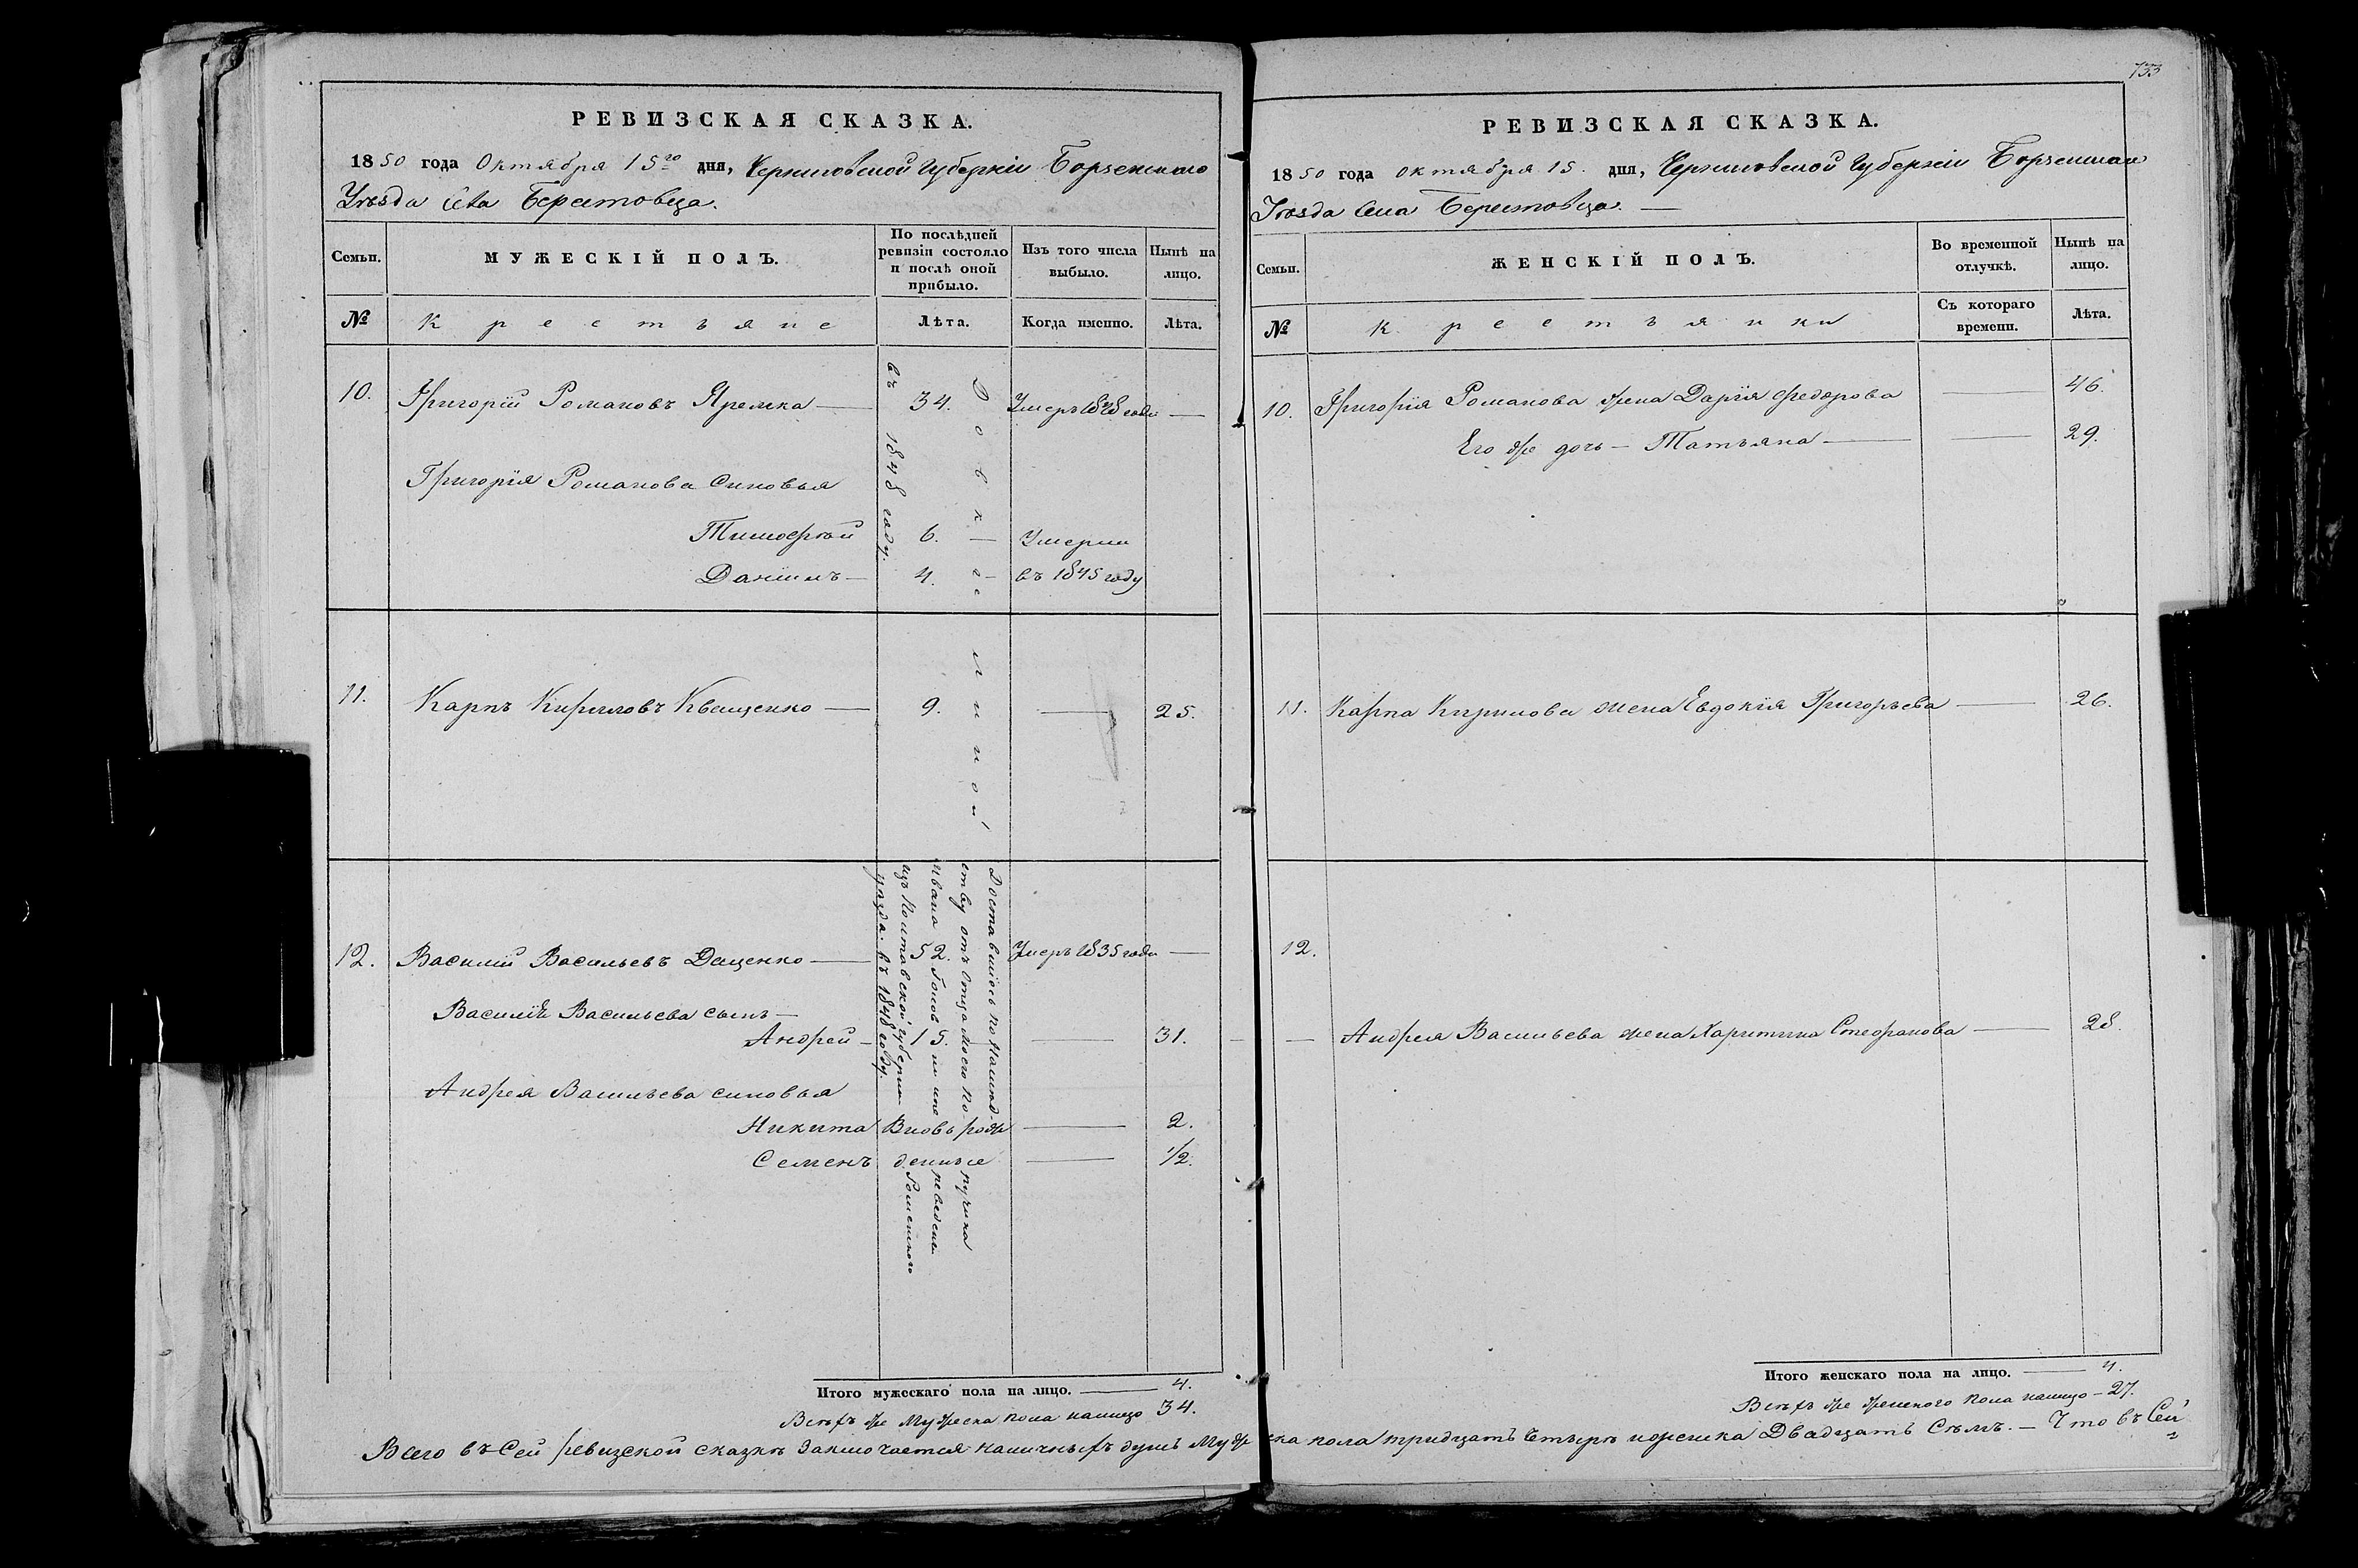 РЕВИЗСКАЯ СКАЗКА.
1850 года Октября 15го дня, Черниговской Губерніи Борзенскаго
Уѣзда Села Берестовца.
Семьи.
МУЖЕСКІЙ ПОЛЪ.
По послѣдней ревизіи состояло и послѣ оной прибыло.
Изъ того числа выбыло.
Нынѣ на лицо.
№
Крестьяне
Лѣта.
Когда именно.
Лѣта.
10. Григорій Романовъ Яремка — 34. Умеръ 1848 года —
Григорія Романова синовья
Тимофѣй 6. — Умерли
Даніилъ — 4. — въ 1845 году
въ 1848 году.
11. Карпъ Кириловъ Кващенко — 9. — 25.
12. Василий Васильевъ Даценко — 52. Умеръ 1835 года —
Василія Васильева сынъ —
Андрей — 15. — 31.
Андрея Васильева синовья
Никита Вновь рож — 2.
Семенъ денные — 1/2.
Доставшіесь по наслѣд-
ству отъ Отца моего По- ручика
Ивана
изъ Полтавской губерніи Роменского
уѣзда. въ 1848 году.
Итого мужескаго пола на лицо. — 4.
Всѣхъ же Мужеска пола налицо 34.
РЕВИЗСКАЯ СКАЗКА.
133
1850 года октября 15. дня, Черниговской Губерніи Борзенскаго
Уѣзда Села Берестовца. —
Семьи.
ЖЕНСКІЙ ПОЛЪ.
Во временной отлучкѣ.
Нынѣ на лицо.
№
Крестьянки
Съ котораго времени.
Лѣта.
10. Григорія Романова жена Дарія Федорова — 46.
Его же дочь — Татьяна — — 29.
11. Карпа Кирилова жена Евдокія Григорьева — 26.
12.
— Андрея Васильева жена Харитина Стефанова — 28.
Итого женскаго пола на лицо. — 4.
Всѣхъ же женского пола налицо — 27.
Всего въ Сей ревизской сказкѣ Заключается наличныхъ душъ Мужеска пола тридцать Четыре и женска Двадцать Сѣмъ. — Что въ Сей